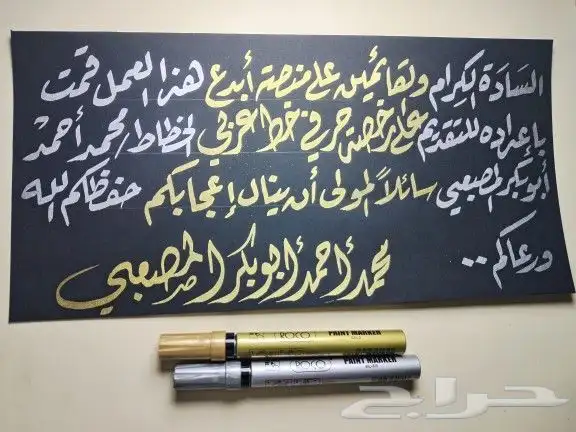 السَادَة الكِرام والقائمين على منصة أبدع هذا العمل قمت
بإعداده للتقديم على رخصة حرفي خط عربي الخطاط/محمد أحمد
أبو بكر المصعبي سائلاً المولى أن ينال إعجابكم حفظكم الله
ورعاكم..
محمد أحمد أبو بكر المصعبي
ROCO PAINT MARKER GOLD
ROCO PAINT MARKER SILVER
حراج